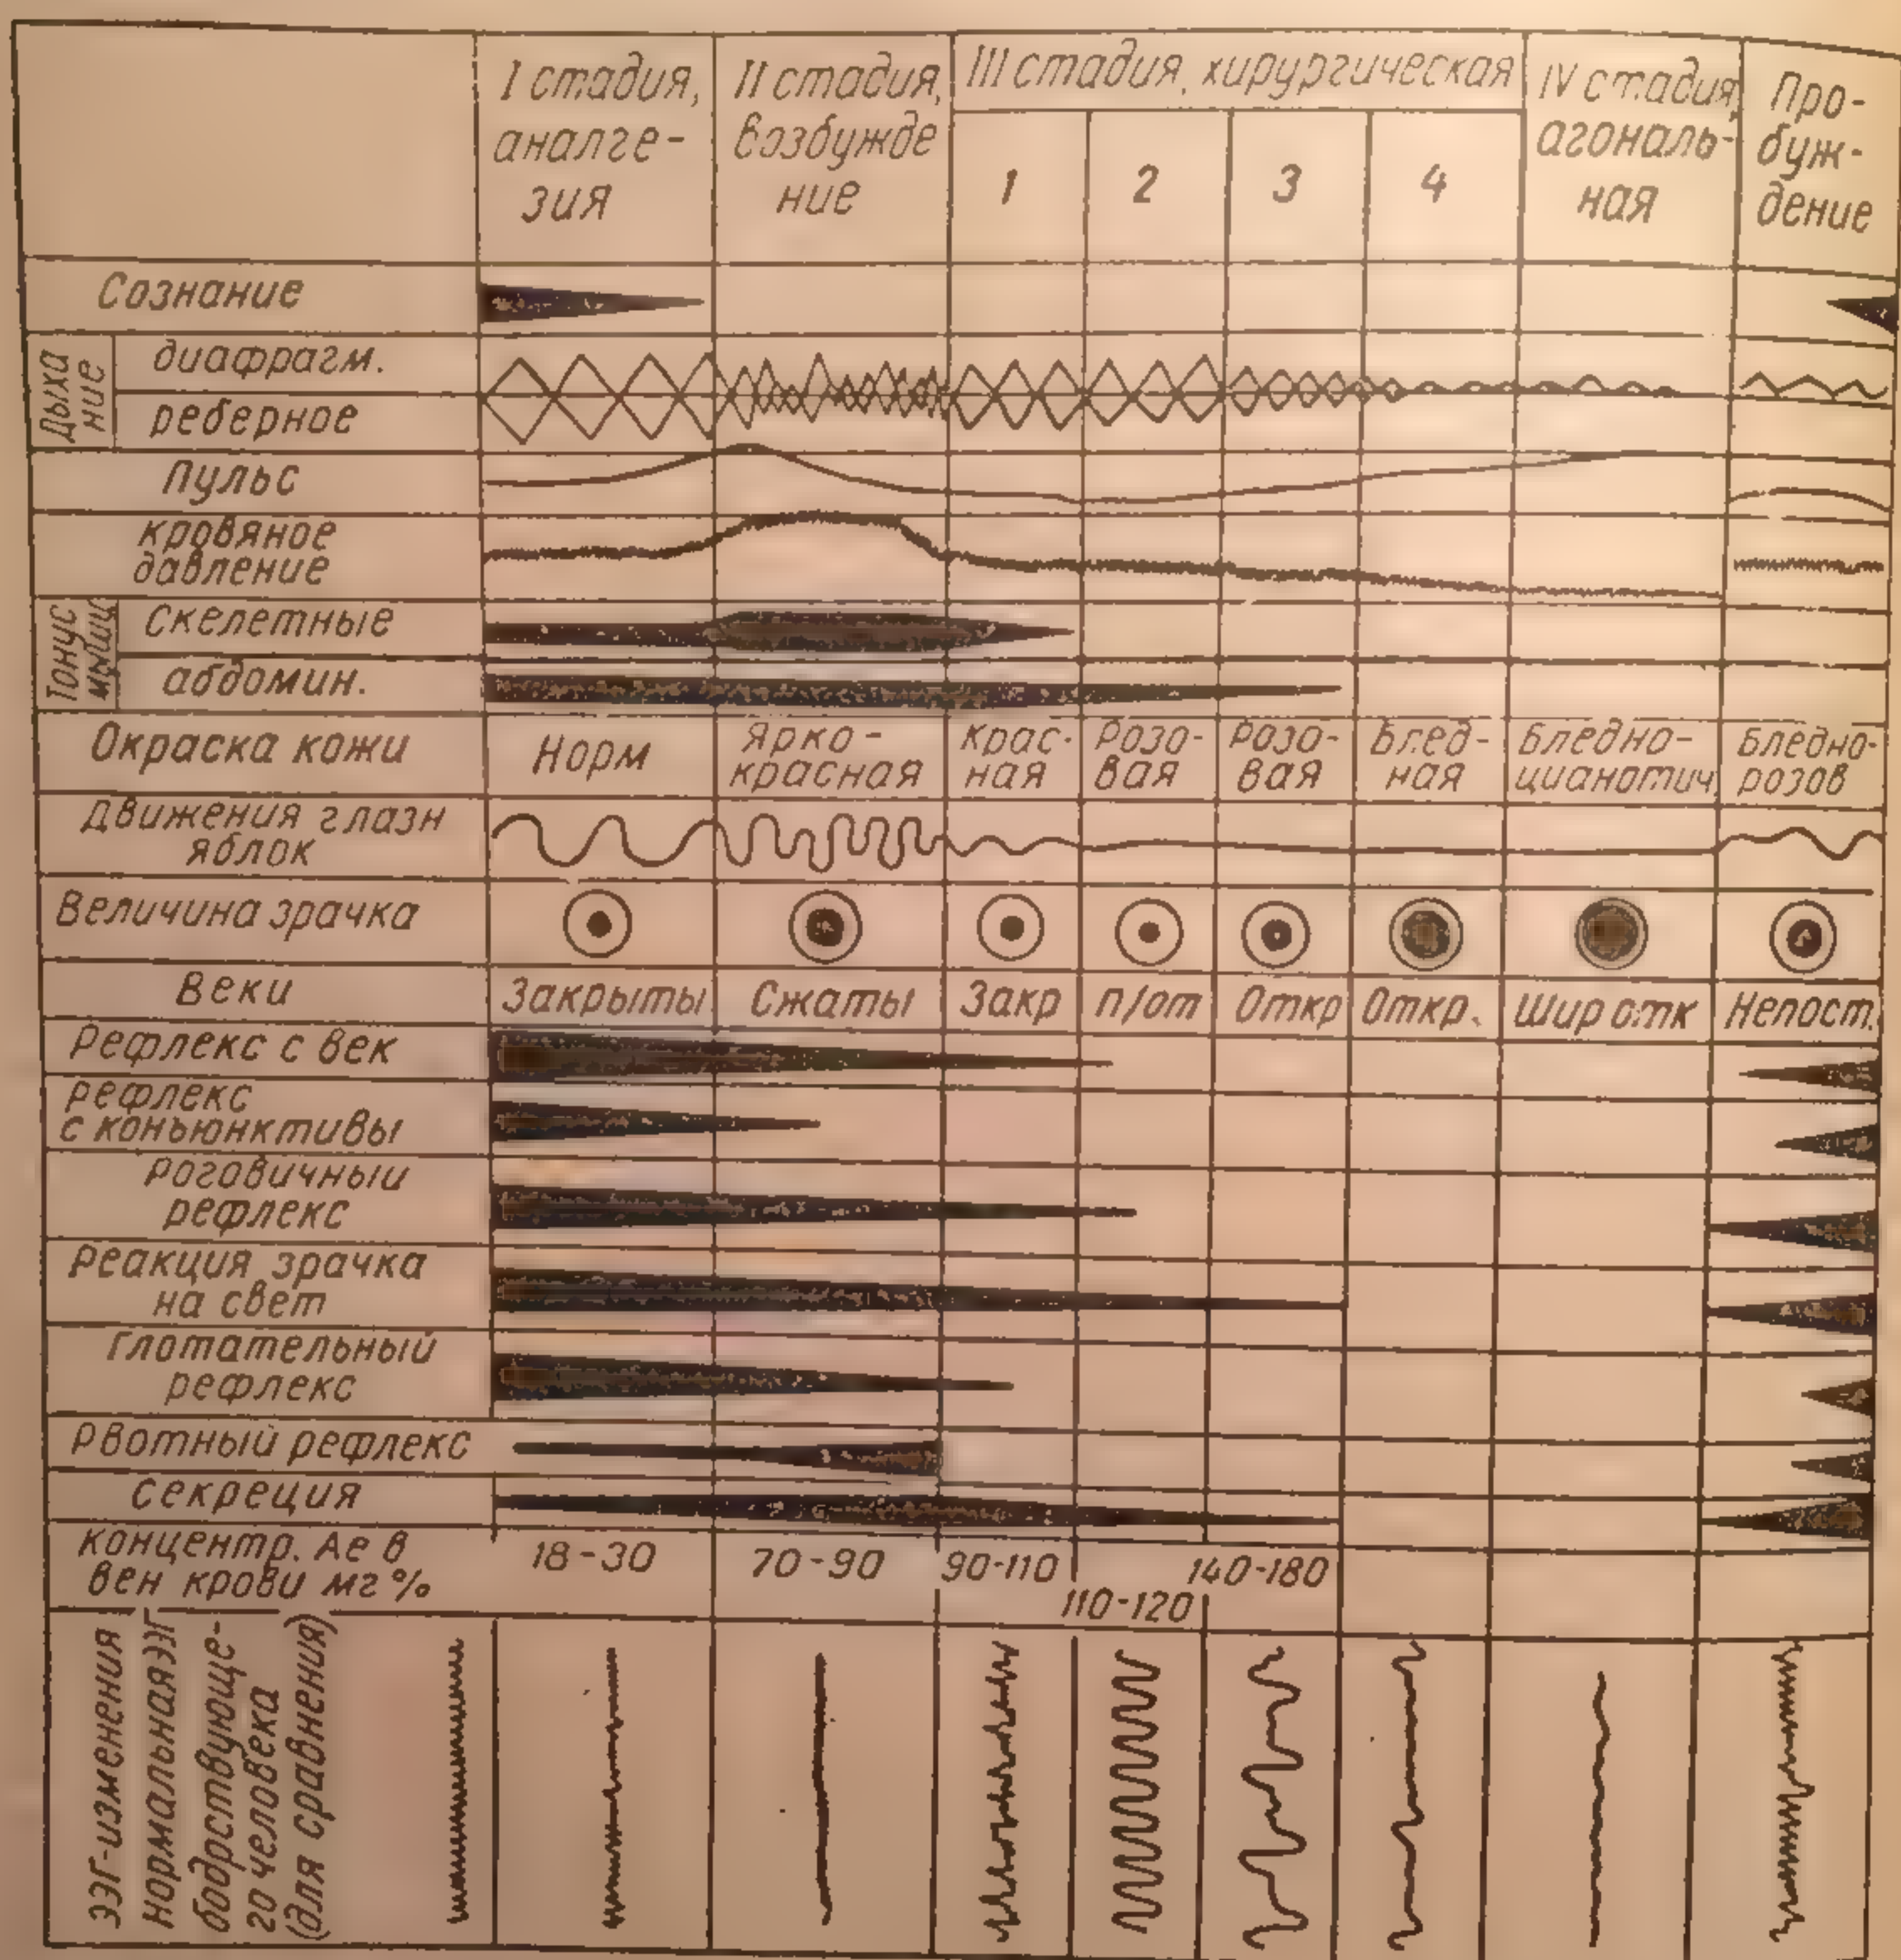 I стадия,
аналге-
зия
II стадия,
возбужде
ние
III стадия, хирургическая
1
2
3
4
IV стадия,
агональ-
ная
Про-
буж-
дение
Сознание
Дыха
ние
диафрагм.
реберное
Пульс
кровяное
давление
Тонус
мышц
Скелетные
абдомин.
Окраска кожи
Норм
Ярко-
красная
Крас-
ная
Розо-
вая
Розо-
вая
Блед-
ная
Бледно-
цианотич
Бледно-
розов
Движения глазн
яблок
Величина зрачка
Веки
Закрыты
Сжаты
Закр
п/от
Откр
Откр.
Шир отк
Непост.
Рефлекс с век
рефлекс
с конъюнктивы
Роговичный
рефлекс
Реакция зрачка
на свет
Глотательный
рефлекс
Рвотный рефлекс
Секреция
Концентр. Ae в
вен крови мг %
18-30
70-90
90-110
110-120
140-180
ЭЭГ-изменения
нормальная ЭЭГ
бодрствующе-
го человека
(для сравнения)